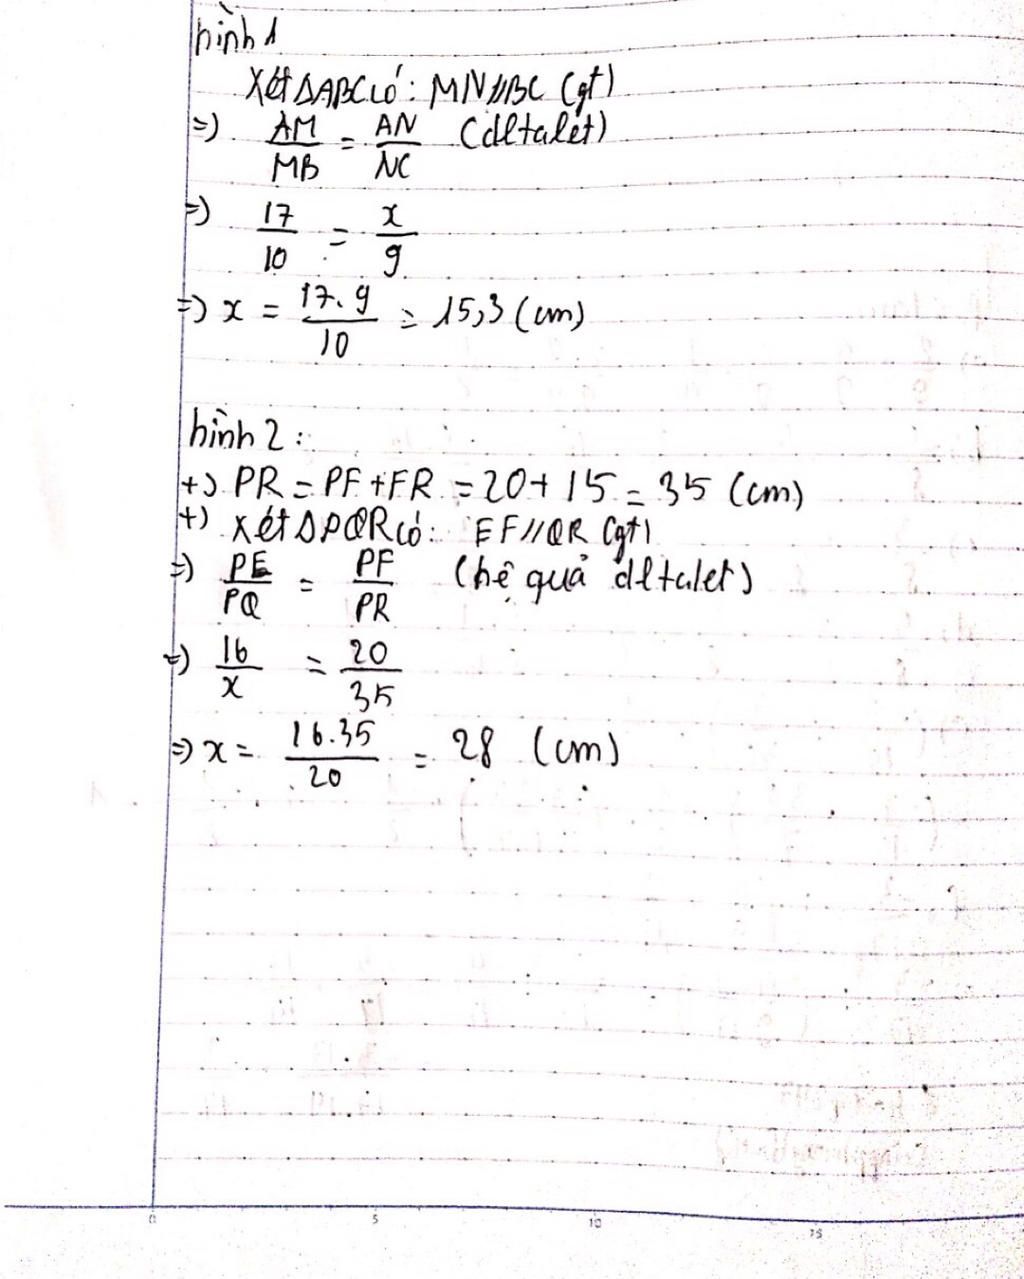 hình 1
Xét ΔABC có: MN//BC (gt)
=) AM/MB = AN/NC (đl talét)
=) 17/10 = x/9
=) x = 17.9/10 = 15,3 (cm)
hình 2:
+) PR = PF + FR = 20 + 15 = 35 (cm)
+) Xét ΔPQR có: EF//QR (gt)
=) PE/PQ = PF/PR (hệ quả đl talet)
=) 16/x = 20/35
=) x = 16.35/20 = 28 (cm)
0 5 10 15